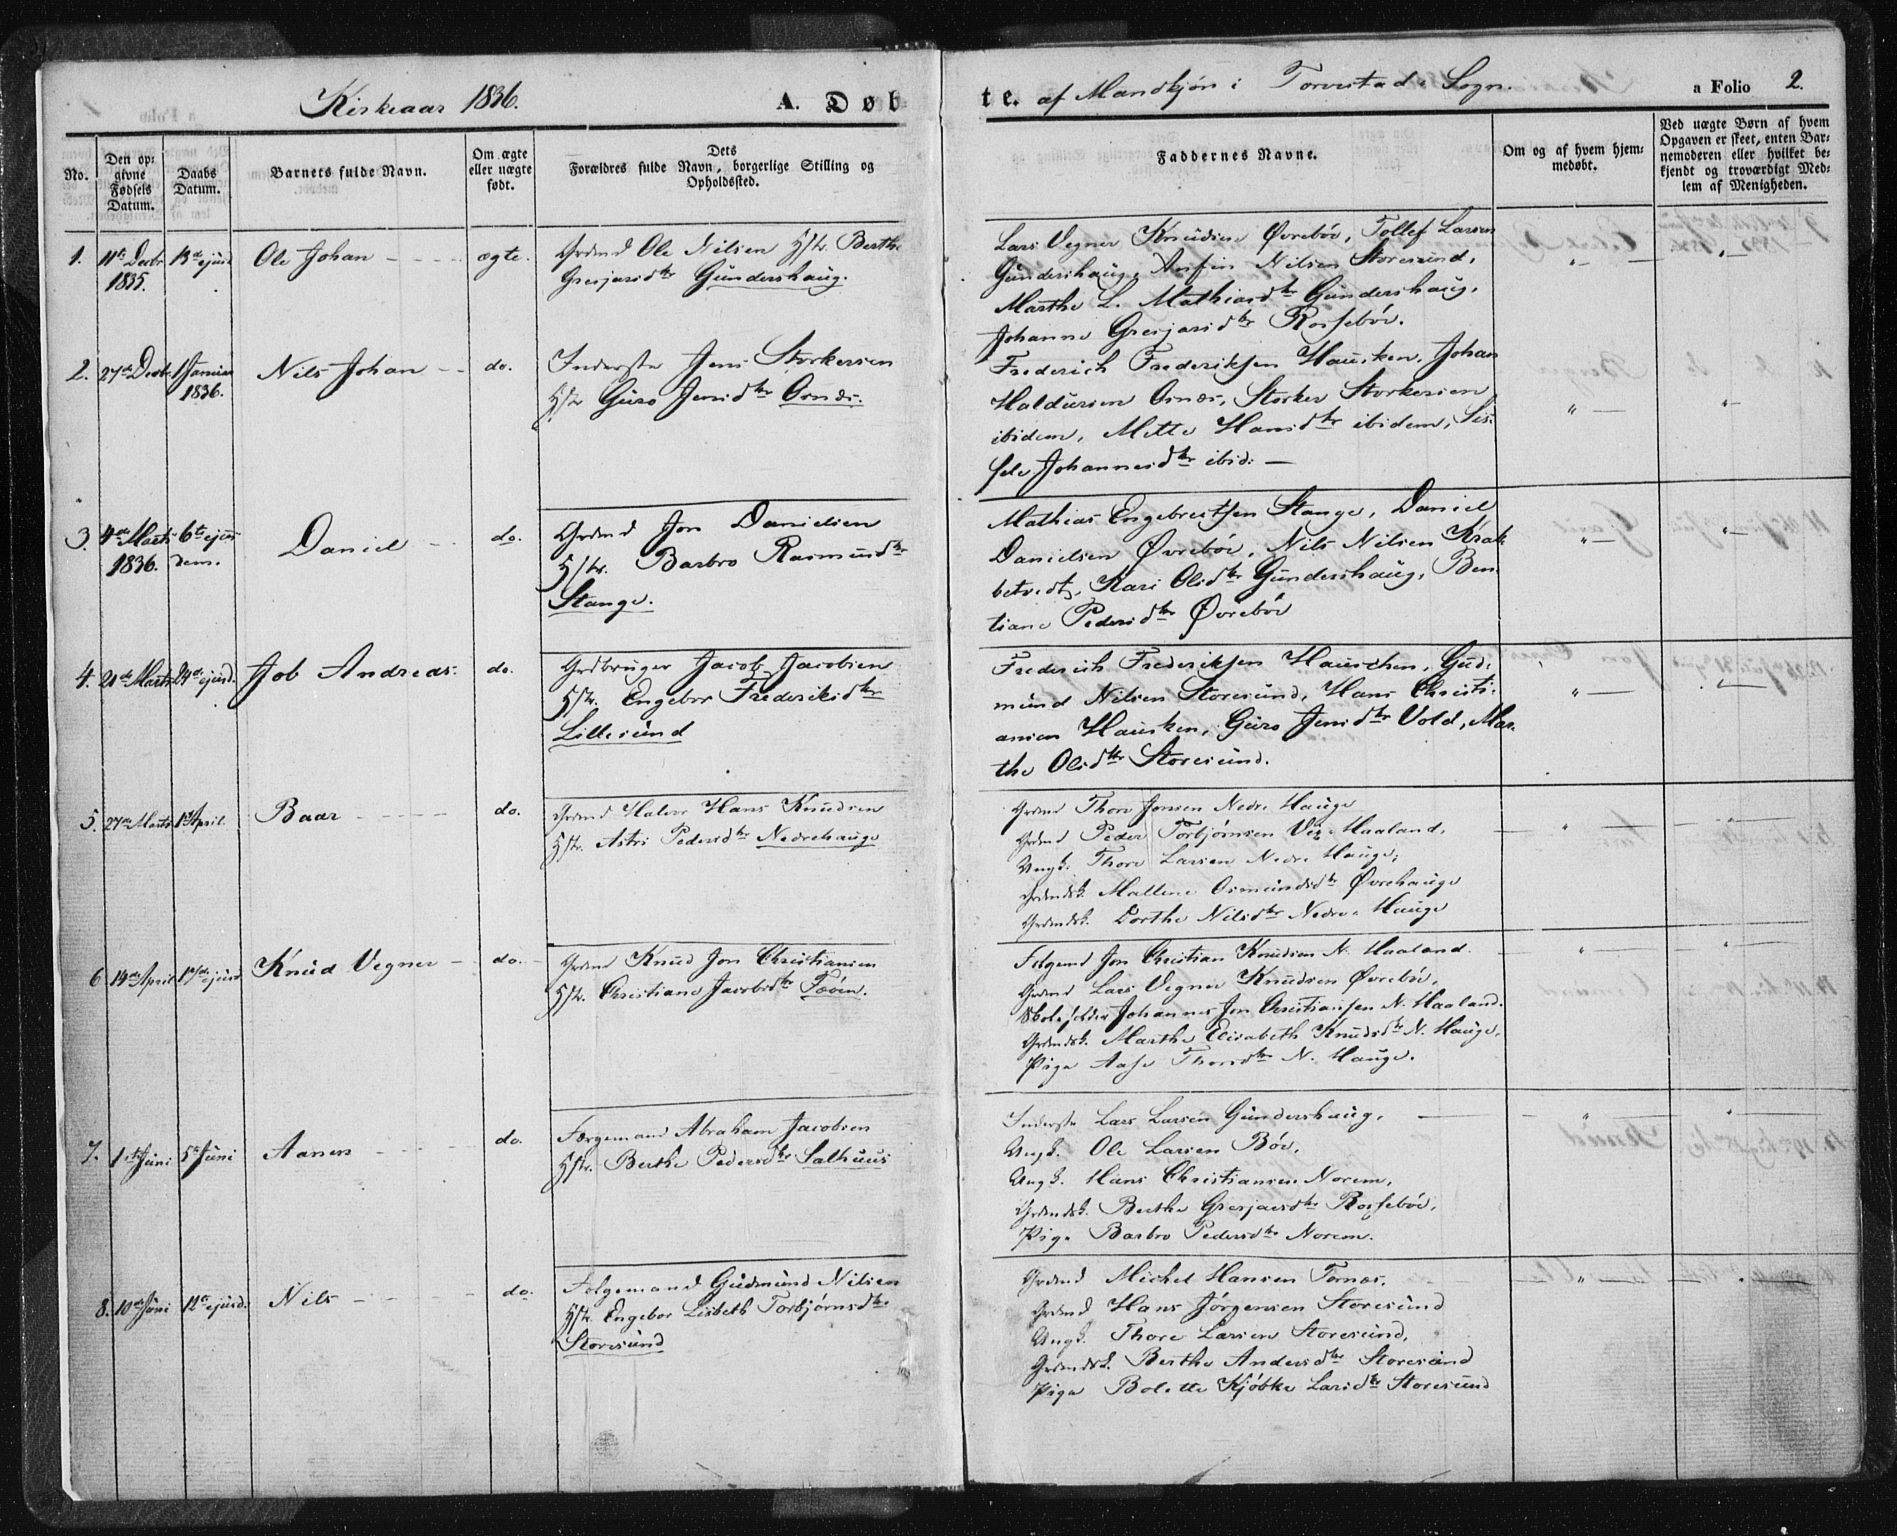 Kirkeaar 1836.
A. Døb
te. af Mandkjøn i Torvestad Sogn.
a Folio 2.
No.
Den op-
givne
Fødsels
Datum.
Daabs
Datum.
Barnets fulde Navn.
Om ægte
eller uægte
født.
Dets
Forældres fulde Navn, borgerlige Stilling og
Opholdssted.
Faddernes Navne.
Om og af hvem hjem-
medøbt.
Ved uægte Børn af hvem
Opgaven er skeet, enten Bar-
nemoderen eller hvilket be-
kjendt og troværdigt Med-
lem af Menigheden.
1. 11te Decbr 13de ejusd Ole Johan ægte.
1835.
Grdmd Ole Nilsen Hstr Berthe
Gresjarsdtr Gundershaug.
Lars Vegner Knudsen Øvreböe, Tollef Larsen
Gundershaug, Anfin Nilsen Storesund,
Marthe L. Mathiasdtr Gundershaug,
Johanne Gresjarsdtr Rosseböe.
2. 27de Decbr 1 Januar Nils Johan do.
1836.
Inderste Jens Storkersen
Hstr Guro Jensdtr Osnæs.
Frederich Frederiksen Hausken, Johan
Haldorsen Osnæs, Storker Storkersen
ibidem, Mette Hansdtr ibidem, Sis-
sele Johannesdtr ibid: —
3. 4de Marts 6te ejus Daniel do.
1836. dem.
Grdmd Jon Danielsen
Hstr. Barbro Rasmusdtr
Stange.
Mathias Engebretsen Stange, Daniel
Danielsen Øvreböe, Nils Nilsen Krak
betvedt, Kari Olsdtr Gundershaug, Ben-
tiane Pedersdtr Øvreböe
4. 21de Marts 24de ejusd. Job Andreas. do.
Grdbruger Jacob Jacobsen
Hstr. Engebor Frederiksdtr
Lillesund
Frederich Frederiksen Hauschen, Gud-
mund Nilsen Storesund, Hans Christi-
ansen Hausken, Guro Jensdtr Vold, Mar-
the Olsdtr Storesund.
5. 27de Marts 1ste April. Baar do.
Grdmd Halvor Hans Knudsen
Hstr. Astri Pedersdtr Nedrehauge
Grdmd Thore Jonsen Nedre Hauge
Grdmd Peder Torbjørnsen Ve Haaland,
Ungk. Thore Larsen Nedre Hauge,
Grdmdsk. Mallene Osmundsdtr Øvrehauge
Grdmdsk. Dorthe Nilsdtr Nedre Hauge
6 14de April 17de ejusd Knud Vegner do.
Grdmd Knud Jon Christiansen
Hstr. Christiane Jacobsdtr
Folgemd Jon Christian Knudsen N. Haaland.
Grdmd Lars Vegner Knudsen Øvreböe,
Skoleholder Johannes Jon Christiansen N. Haaland.
Grdmdsk. Marthe Elisabeth Knudsdtr N. Hauge,
Pige Aase Thoresdtr N. Hauge.
7. 1ste Juni 5te Juni Aanen do.
Færgemand Abraham Jacobsen
Hstr. Berthe Pedersdtr Salhuus
Inderste Lars Larsen Gundershaug,
Ungk. Ole Larsen Böe,
Ungk. Hans Christiansen Norem,
Grdmdsk. Berthe Gresjarsdtr Rosseböe,
Pige Barbro Pedersdtr Norem.
8. 10de Juni 12te ejusd. Nils do.
Folgemand Gudmund Nilsen
Hstr. Engebor Lisbeth Torbjørnsdtr
Storesund
Grdmd Michel Hansen Tornæs,
Grdmd Hans Jörgensen Storesund
Ungk. Thore Larsen Storesund,
Grdmdsk. Berthe Andersdtr Storesund
Pige Bolette Kjöbke Larsdtr Storesund